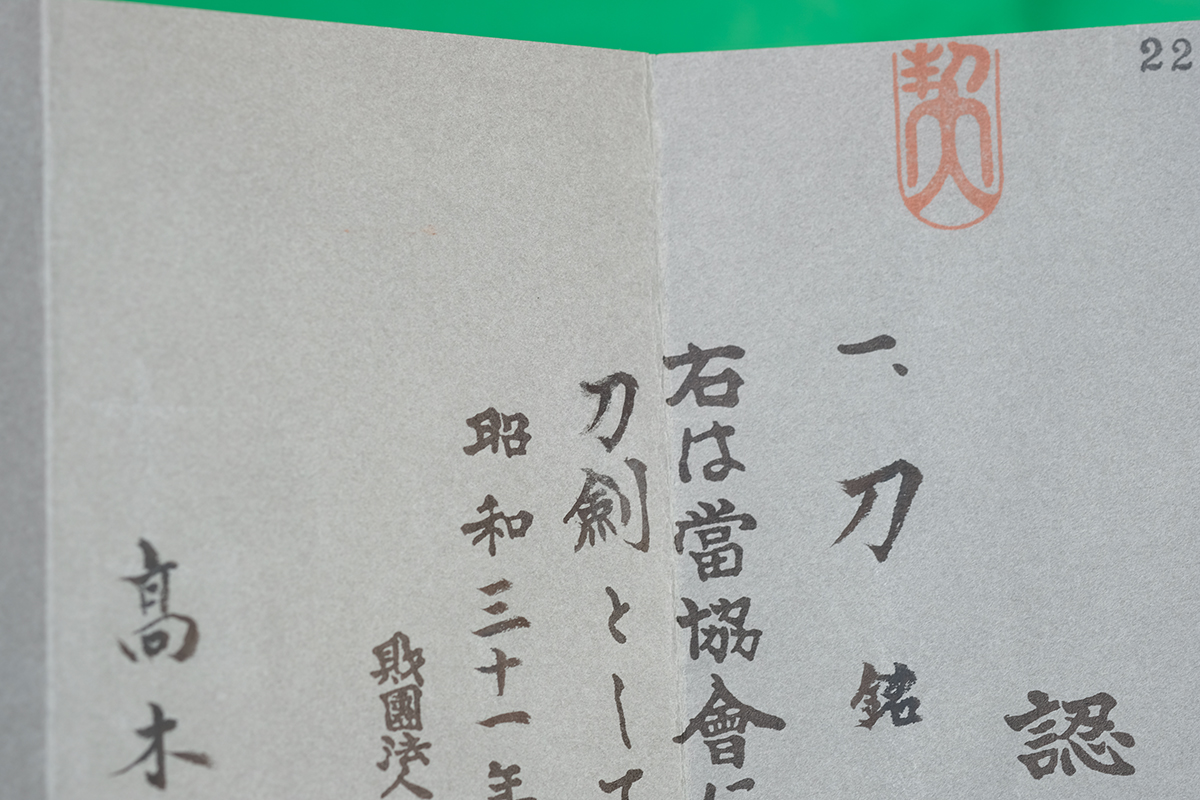 22
契
認
一、刀 銘
右は當協會に
刀剣として
昭和三十一年
財團法人
高木